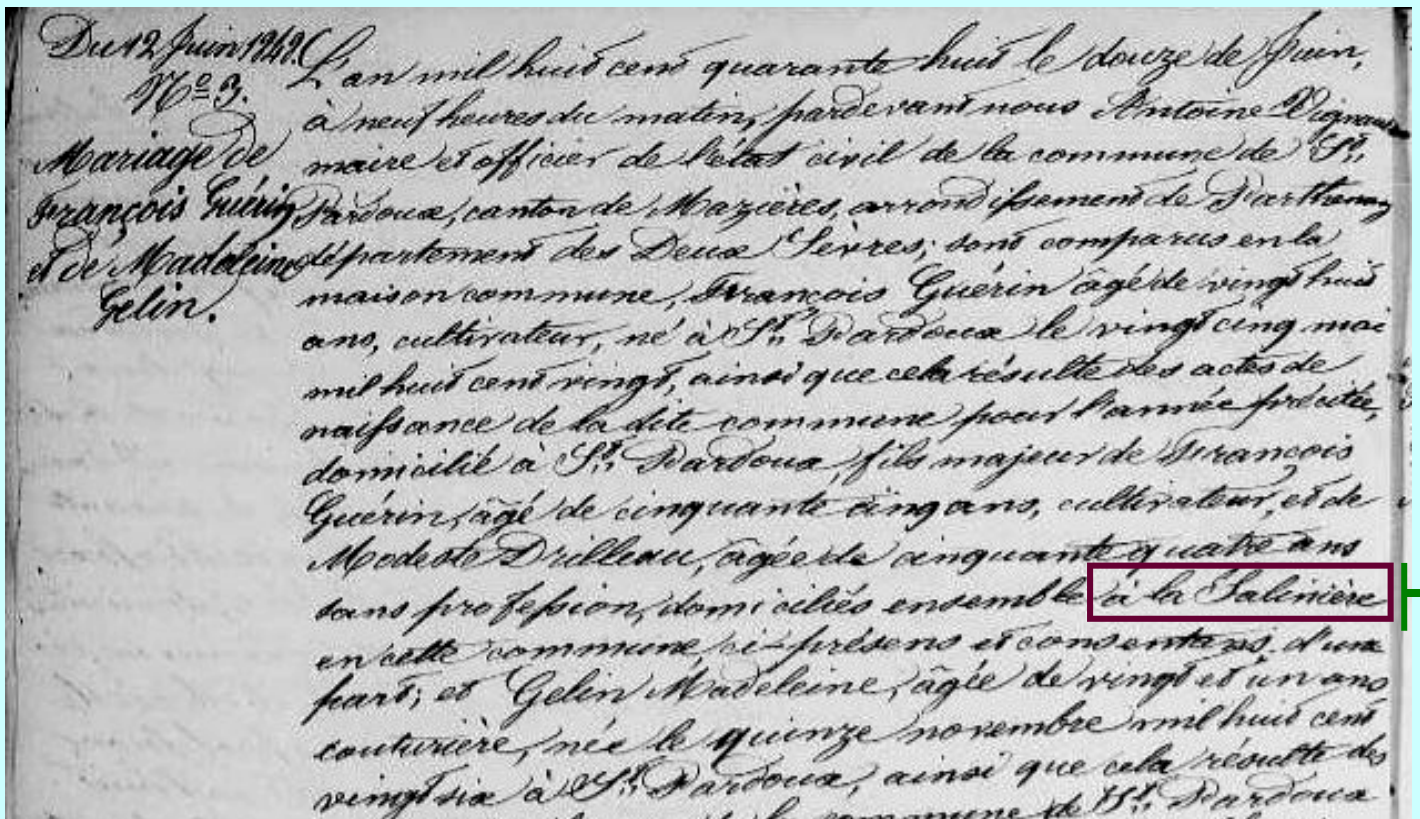 Du 12 Juin 1848.
N° 3.
Mariage de
François Guérin
et de Madeleine
Gelin.
L'an mil huit cent quarante huit le douze de Juin,
à neuf heures du matin, pardevant nous Antoine
maire et officier de l'état civil de la commune de St.
Pardoux, canton de Mazières, arrondissement de Parthenay
département des Deux Sèvres; sont comparus en la
maison commune, François Guérin âgé de vingt huit
ans, cultivateur, né à St. Pardoux le vingt cinq mai
mil huit cent vingt, ainsi que cela résulte des actes de
naissance de la dite commune pour l'année précitée,
domicilié à St. Pardoux, fils majeur de François
Guérin, âgé de cinquante cinq ans, cultivateur, et de
Modeste Drilleau, âgée de cinquante quatre ans
sans profession, domiciliés ensemble à la Salinière
en cette commune, ci-présens et consentans, d'une
part; et Gelin Madeleine, âgée de vingt et un ans
couturière, née le quinze novembre mil huit cent
vingt six à St. Pardoux, ainsi que cela résulte des
commune de St. Pardoux